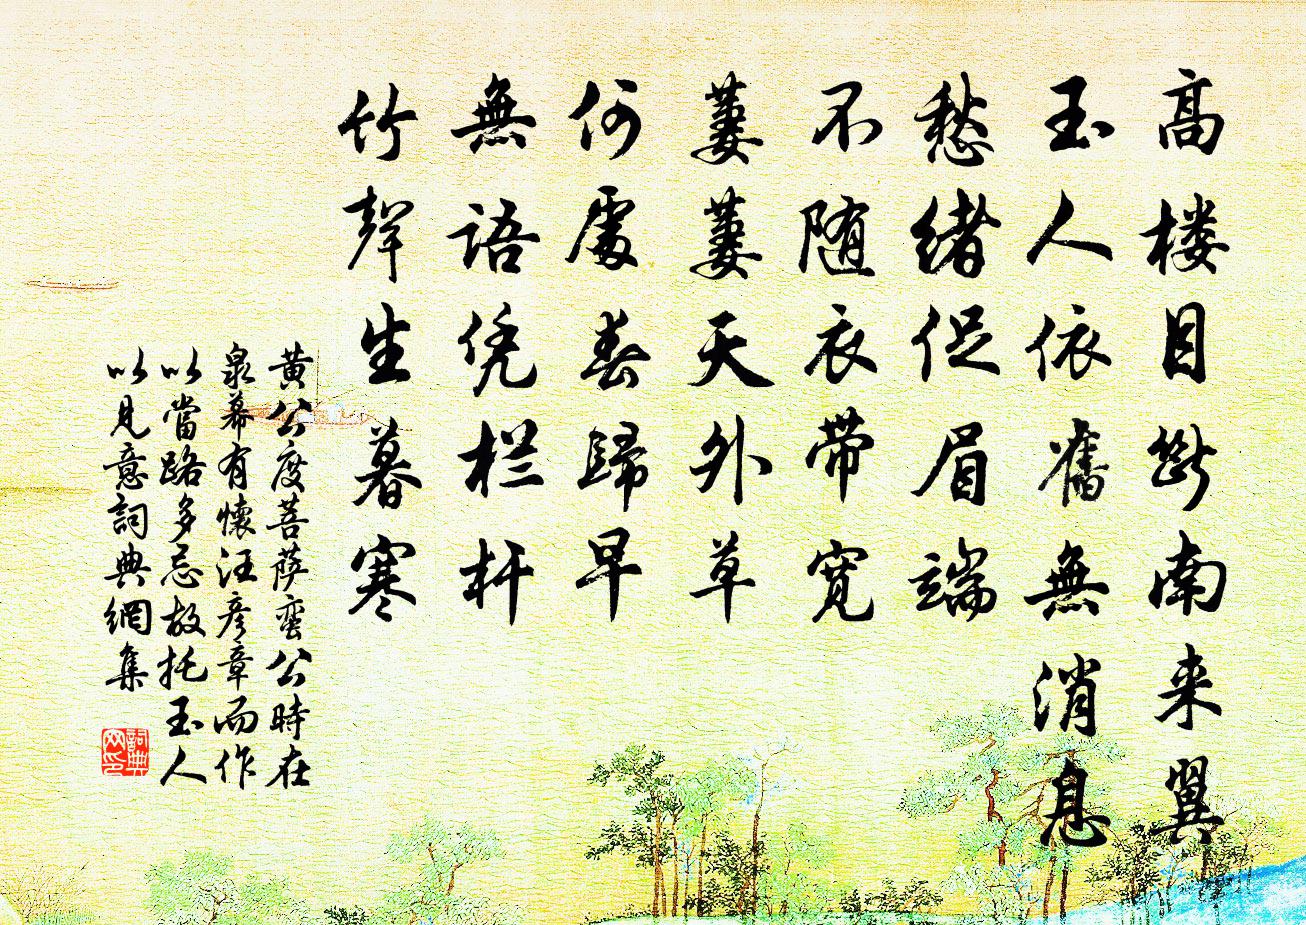 高楼目断南来翼
玉人依舊無消息
愁緒促眉端
不随衣带宽
萋萋天外草
何處春歸早
無語凭栏杆
竹聲生暮寒
黄公度菩萨蛮公時在
泉幕有懷汪彦章而作
以當路多忌故托玉人
以見意詞典網集
詞典
网印